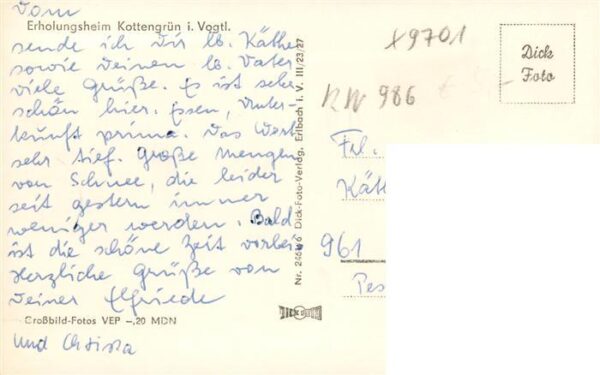 Vom
Erholungsheim Kottengrün i. Vogtl.
sende ich Dir lb. Käthe
sowie Deinen lb. Vater
viele Grüße. Es ist sehr
schön hier. Essen, Unter-
kunft prima. Das
sehr tief. Große Mengen
von Schnee, die leider
seit gestern immer
weniger werden. Bald
ist die schöne Zeit vorbei
Herzliche Grüße von
Deiner Elfriede
Großbild-Fotos VEP –,20 MDN
und
Dick-Foto-Verlag, Erlbach i. V. III/23/27
X9701
RW 986
Dick
Foto
Frl.
Käth
961
Pes